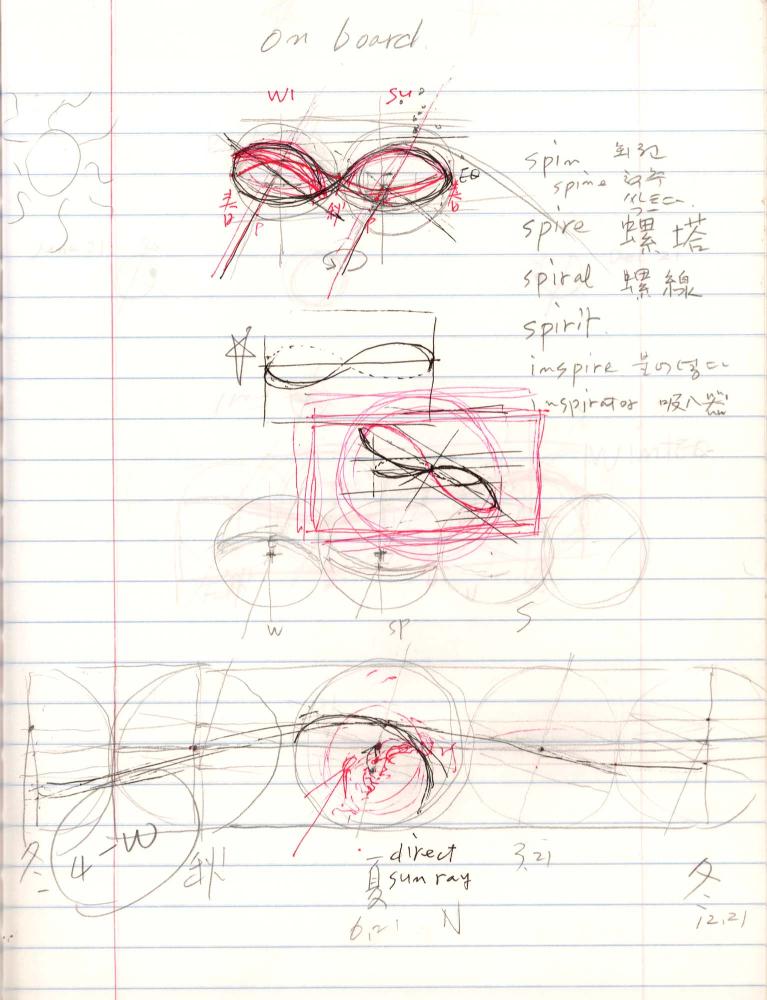 on board
WI
Su
EQ
春
秋
春
P
P
spin 회전
spine 척추
spire 螺塔
spiral 螺線
spirit.
inspire 불어넣다
inspirator 吸入器
W
SP
S
4-W
冬
秋
夏
direct
sun ray
3.21
冬
6.21
N
12.21